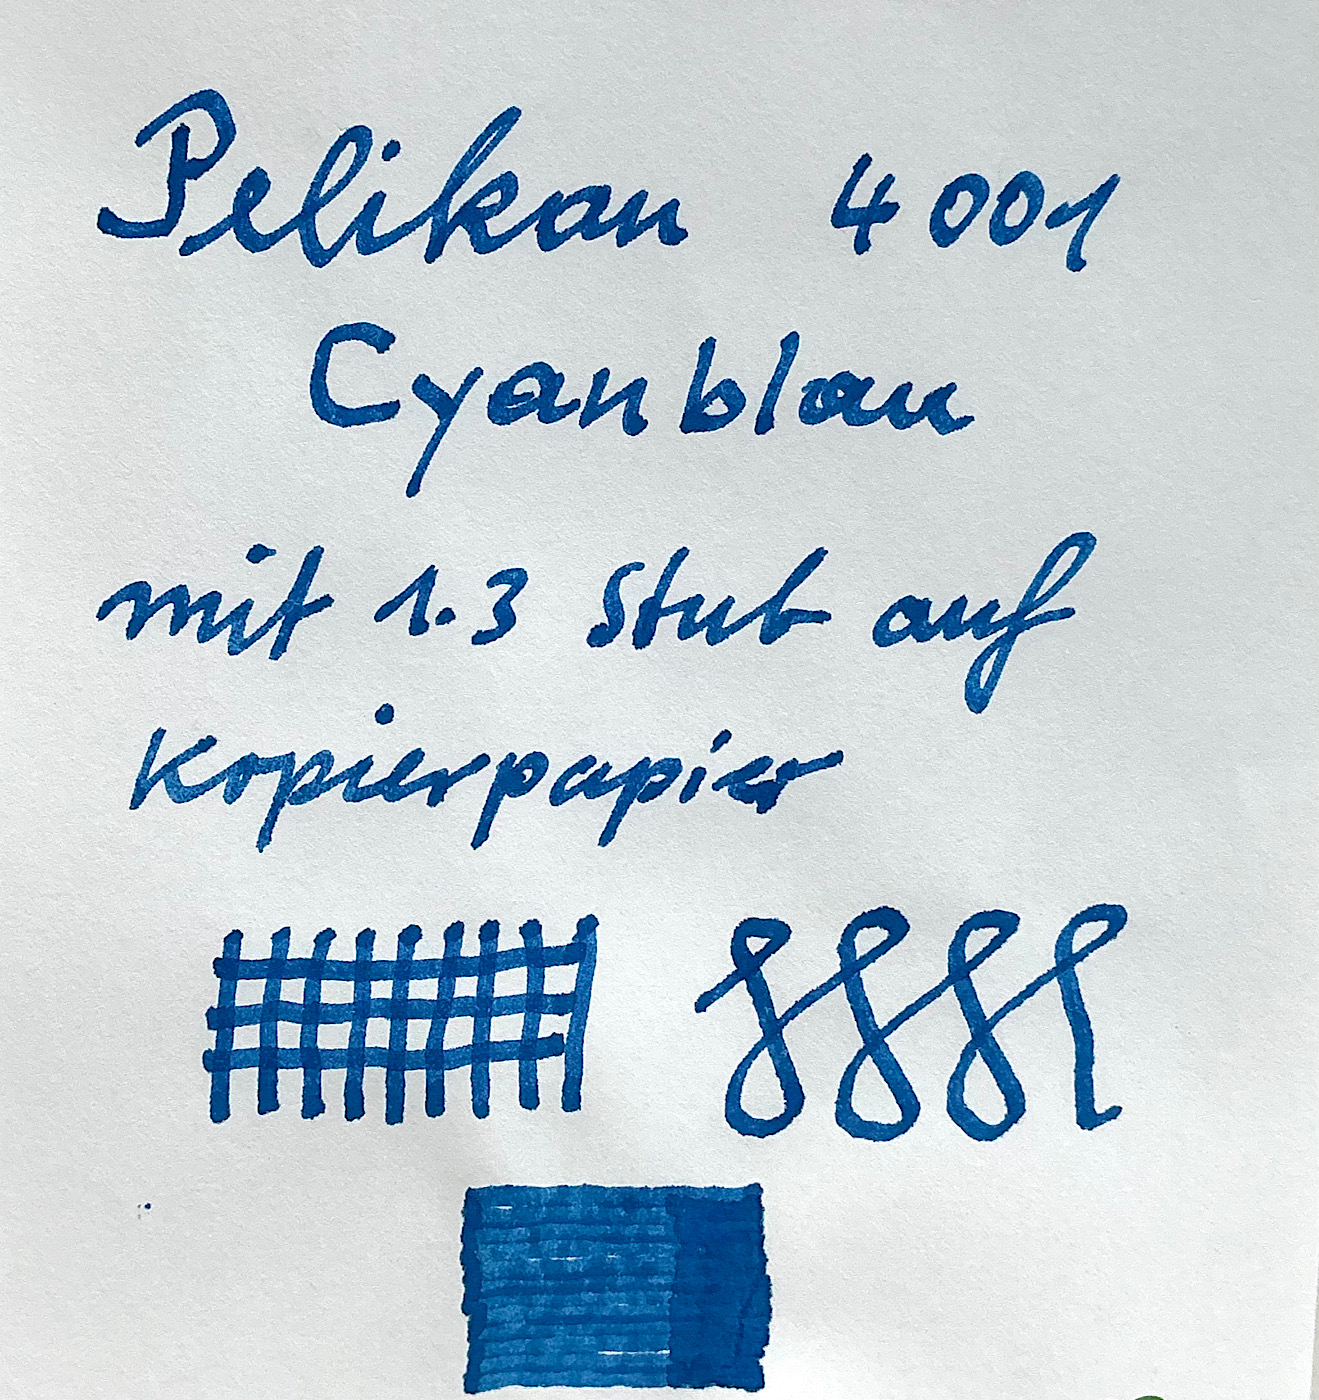 Pelikan 4001
Cyanblau
mit 1.3 Stub auf
Kopierpapier